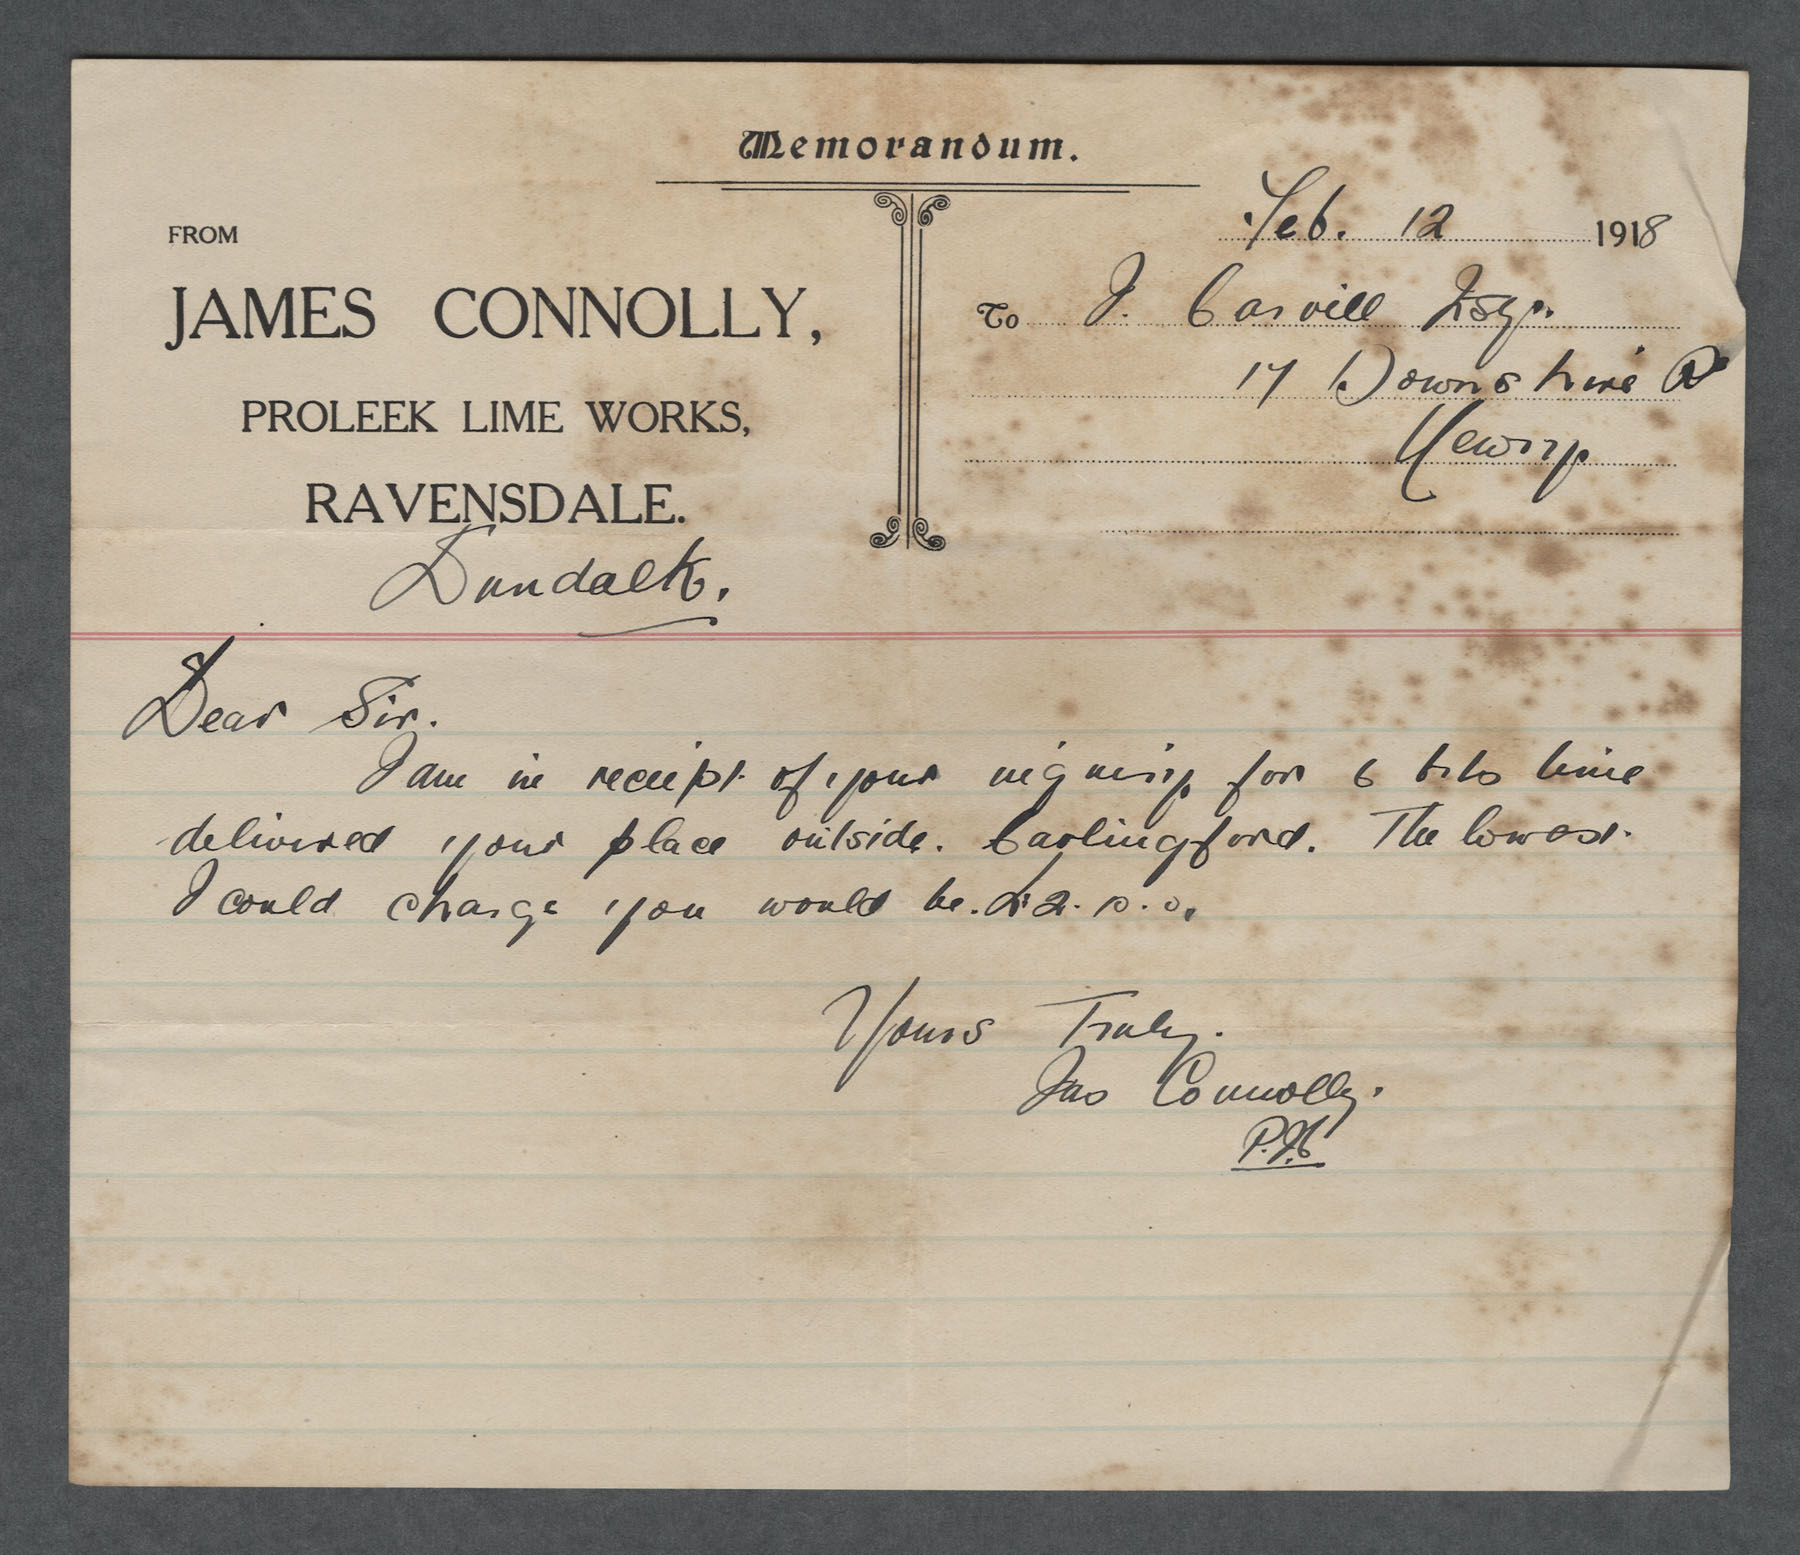 Memorandum.
FROM
JAMES CONNOLLY,
PROLEEK LIME WORKS,
RAVENSDALE.
Dundalk.
Feb. 12 1918
To J. Carvill Esqr.
17 Downshire Rd
Newry
Dear Sir.
I am in receipt of your inquiry for 6 brls lime
delivered your place outside. Carlingford. The lowest
I could charge you would be. £2. 10. 0.
Yours Truly.
Jas Connolly.